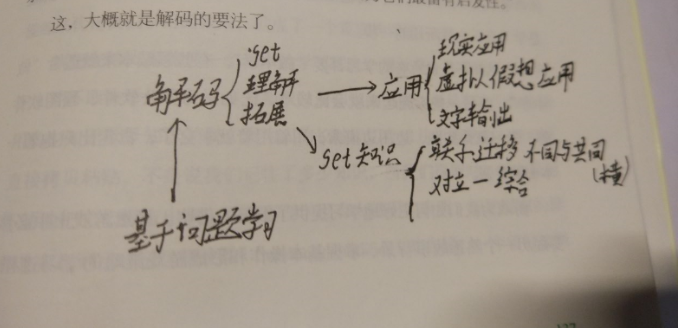 这，大概就是解码的要法了。
get
理解
拓展
解码
应用
现实应用
虚拟假想应用
文字输出
get知识
联系迁移 不同与共同
(横)
对立—综合
基于问题学习